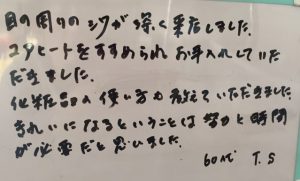 目の周りのシワが深く来店しました。
コアヒートをすすめられお手入れしていた
だきました。
化粧品の使い方も教えていただきました
きれいになるということは努力と時間
が必要だと思いました。
60代 T.S